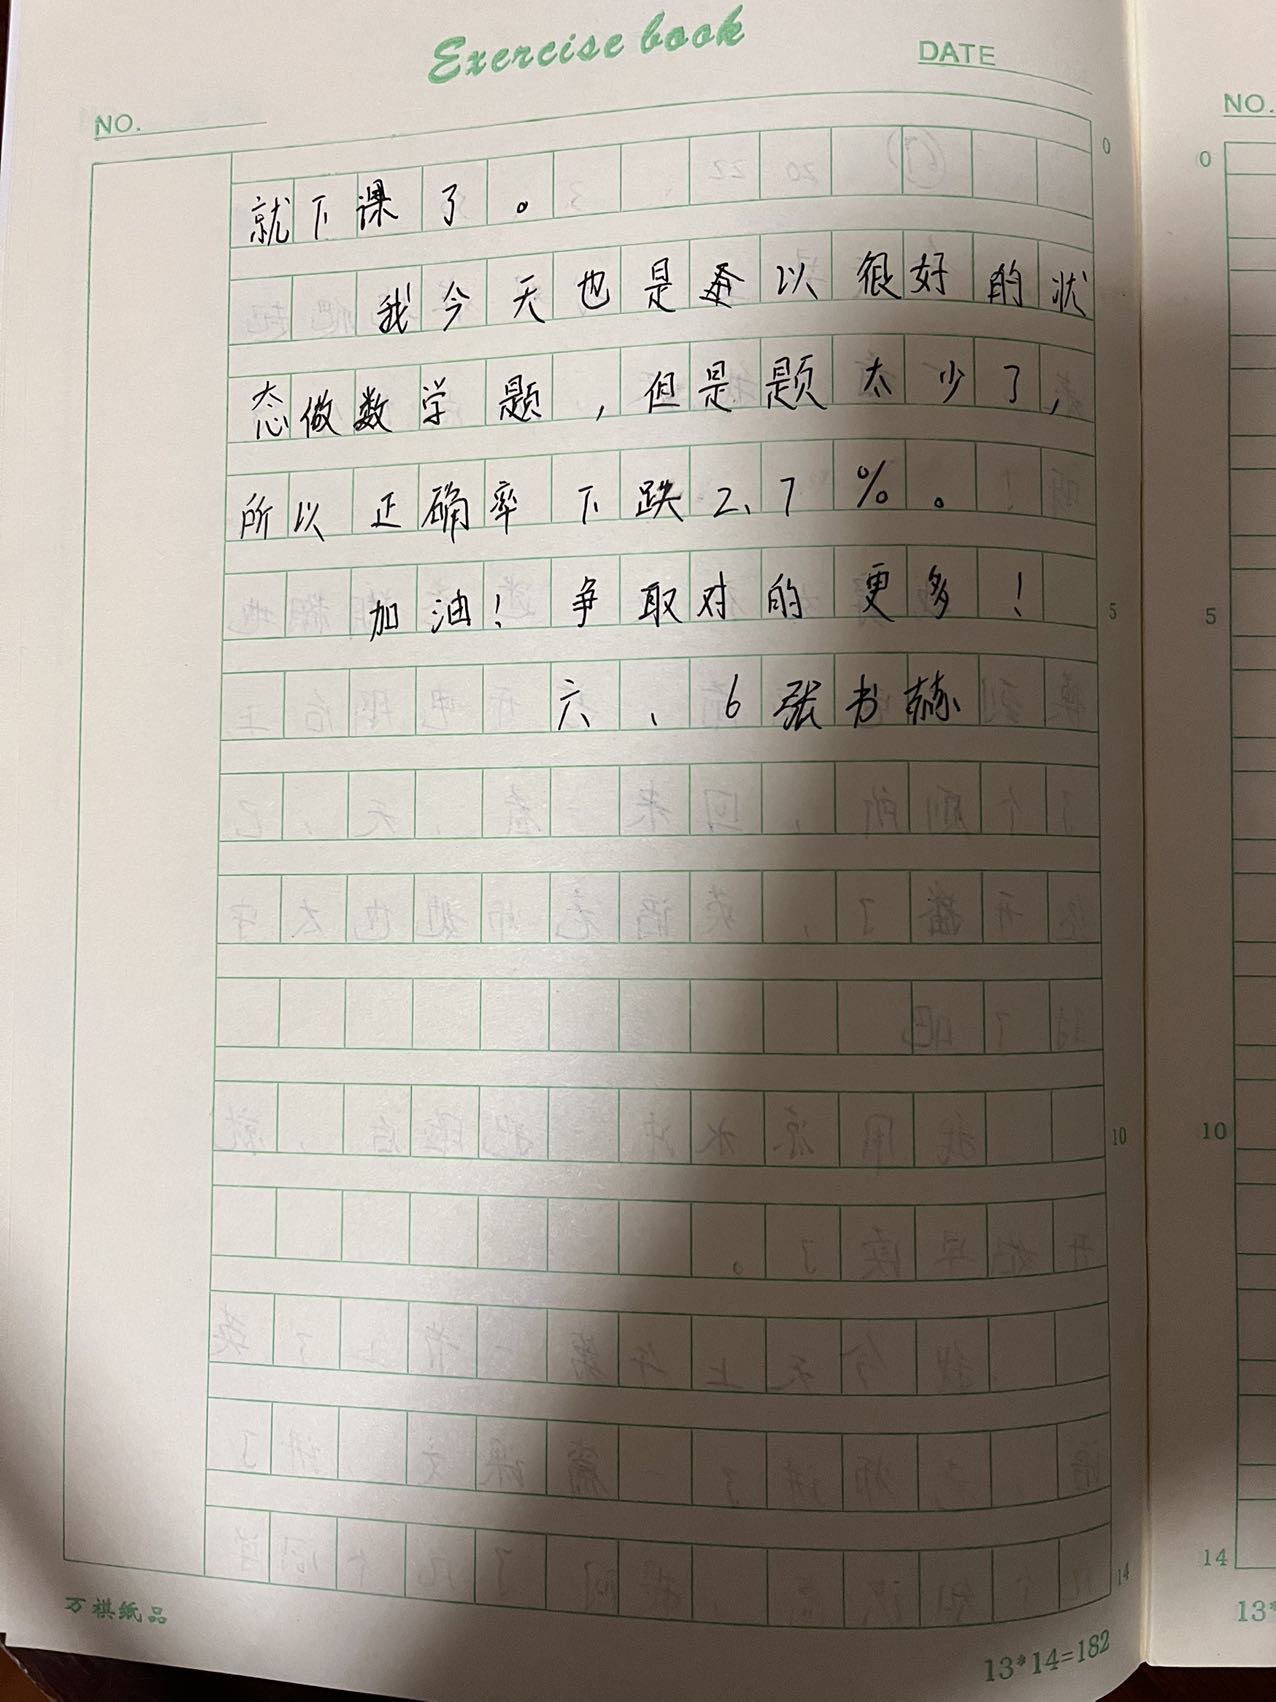 Exercise book
DATE
NO.
NO.
0
0
就下课了。
我今天也是以很好的状
态做数学题，但是题太少了，
所以正确率下跌2、7%。
加油！争取对的更多！
5
5
六、6张书赫
10
10
14
14
万祺纸品
13*14=182
13*